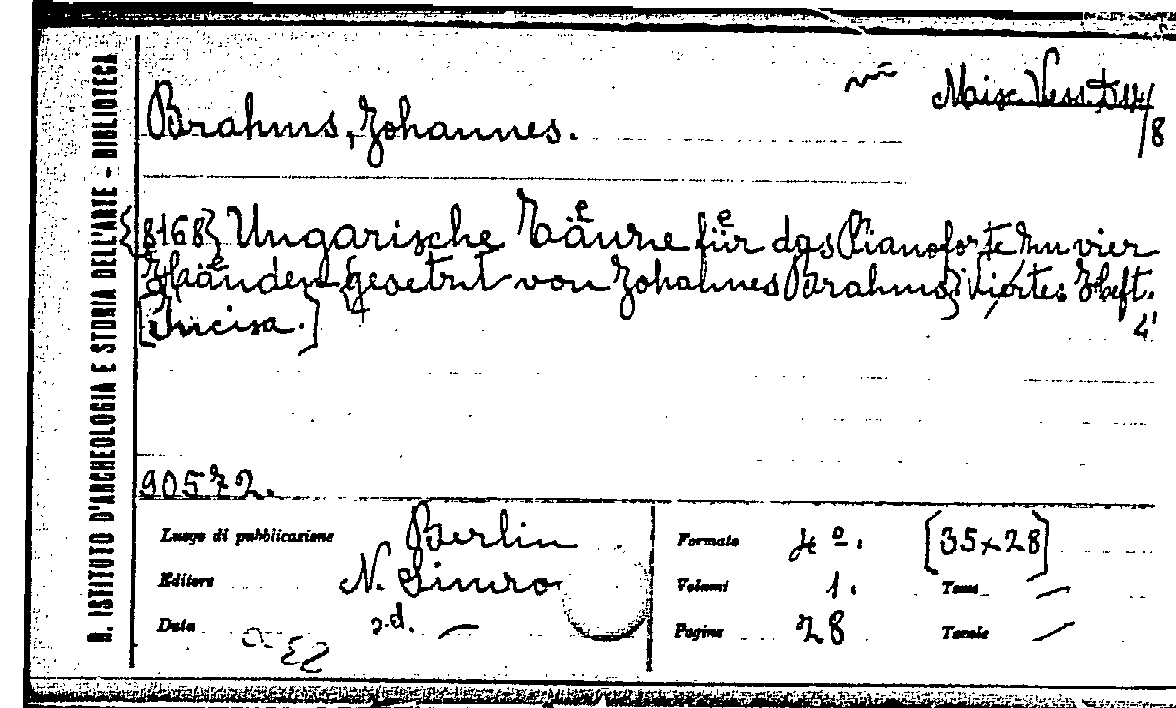 R. ISTITUTO D'ARCHEOLOGIA E STORIA DELL'ARTE - BIBLIOTECA
Misc. Vess. D 14/8
Brahms, Johannes.
{8168} Ungarische Tänze für das Pianoforte zu vier
Händen gesetzt von Johannes Brahms} Viertes Heft.
4
[Incisa.]
90572.
Luogo di pubblicazione Berlin
Editore N. Simro
Data s.d. —
Formato 4º. [35x28]
Volumi 1. Tomi —
Pagine 28 Tavole —